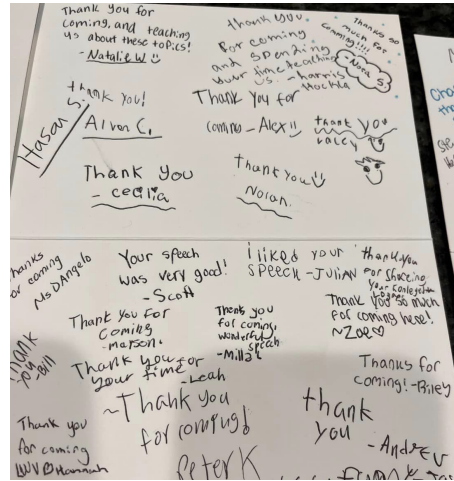 Thank you for
coming, and teaching
us about these topics!
- Natalie W
thank you
for coming
and spending
your time teaching
us. - harris
Thanks so
much for
comming!!!!
- Nora S.
Hasan S.
thank you!
Alvan C.
Thank you for
coming - Alex
thank you
Thank you
- cecilia
thank you
Nolan.
thanks
for coming
Ms DAngelo
Your speech
was very good!
- Scott
i liked your
speech - JULIAN
thank you
for shareing
your
Thank you so much
for coming here!
~Zoe
Thank you for
coming
- marson.
Thank you
for coming,
wonderful
speech
- Milla
Thank
you
-Bill
Thank you for
your time
- Leah
Thanks for
coming! -Riley
~Thank you
for coming!
Peter K
thank
you
- Andrew
Thank you
for coming
Hannah